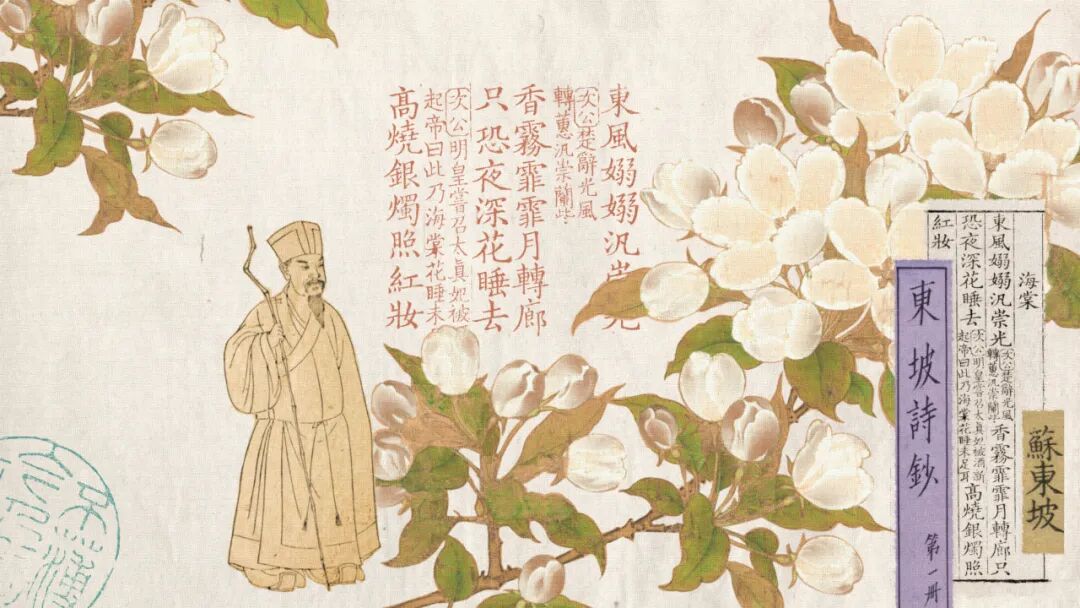 東風嫋嫋汎崇光
次公楚辭光風
轉蕙汎崇蘭些
香霧霏霏月轉廊
只恐夜深花睡去
次公明皇嘗召太真妃被
起帝曰此乃海棠花睡未
高燒銀燭照紅妝
海棠
東風嫋嫋汎崇光
次公楚辭光風
轉蕙汎崇蘭些
香霧霏霏月轉廊只
恐夜深花睡去
次公明皇嘗召太真妃被酒新
起帝曰此乃海棠花睡未足耳
高燒銀燭照
紅妝
蘇東坡
東坡詩鈔 第一冊